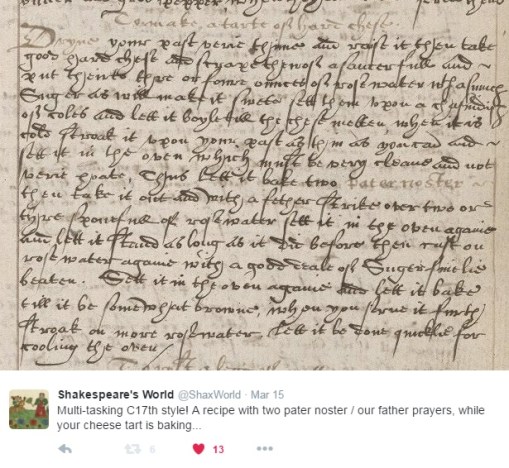 To make, a tarte of hard chese.
Dryue your past verie thinne and raise it then take
good hard chese and scrape thereof a saucer full and
put thereto thre or foure ounces of rose water wth asmuch
Suger as will make it sweete sett them vpon a chafindish
of coles and lett it boyle till the chese melten, when it is
cold stroak it vpon your past as thin as you can and
sett it in the oven which must be very cleane and not
verie hoate, Thus lett it bake two pater noster
then take it out and with a fether strike over two or
thre sponefull of rosewater sett it in the oven againe
and lett it stand as long as it did before, then cast on
rosewater againe with a good deale of Suger finelie
beaten. Sett it in the oven againe and lett it bake
till it be somewhat browne, when you serve it furth
stroak on more rosewater. Lett it be done quicklie for
cooling the oven
Shakespeare's World @ShaxWorld · Mar 15
Multi-tasking C17th style! A recipe with two pater noster / our father prayers, while
your cheese tart is baking...
6 13